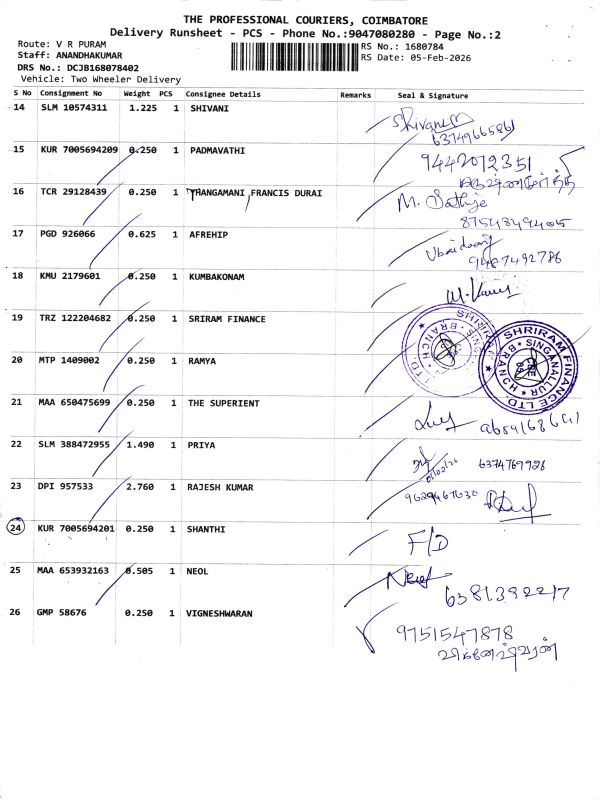 THE PROFESSIONAL COURIERS, COIMBATORE
Delivery Runsheet - PCS - Phone No.:9047080280 - Page No.:2
Route: V R PURAM
Staff: ANANDHAKUMAR
DRS No.: DCJB168078402
Vehicle: Two Wheeler Delivery
RS No.: 1680784
RS Date: 05-Feb-2026
S No Consignment No Weight PCS Consignee Details Remarks Seal & Signature
14 SLM 10574311 1.225 1 SHIVANI Shivani
6374966586
15 KUR 7005694209 0.250 1 PADMAVATHI 9442072351
16 TCR 29128439 0.250 1 THANGAMANI FRANCIS DURAI M. Sathya
8754849405
17 PGD 926066 0.625 1 AFREHIP
9487492786
18 KMU 2179601 0.250 1 KUMBAKONAM
19 TRZ 122204682 0.250 1 SRIRAM FINANCE
SHRIRAM FINANCE LTD.
SINGANALLUR BRANCH
CBE
20 MTP 1409002 0.250 1 RAMYA
21 MAA 650475699 0.250 1 THE SUPERIENT
22 SLM 388472955 1.490 1 PRIYA 6374769926
23 DPI 957533 2.760 1 RAJESH KUMAR 9629467630
24 KUR 7005694201 0.250 1 SHANTHI F/D
25 MAA 653932163 0.505 1 NEOL Neol
6381392217
26 GMP 58676 0.250 1 VIGNESHWARAN 9751547878
விக்னேஷ்வரன்